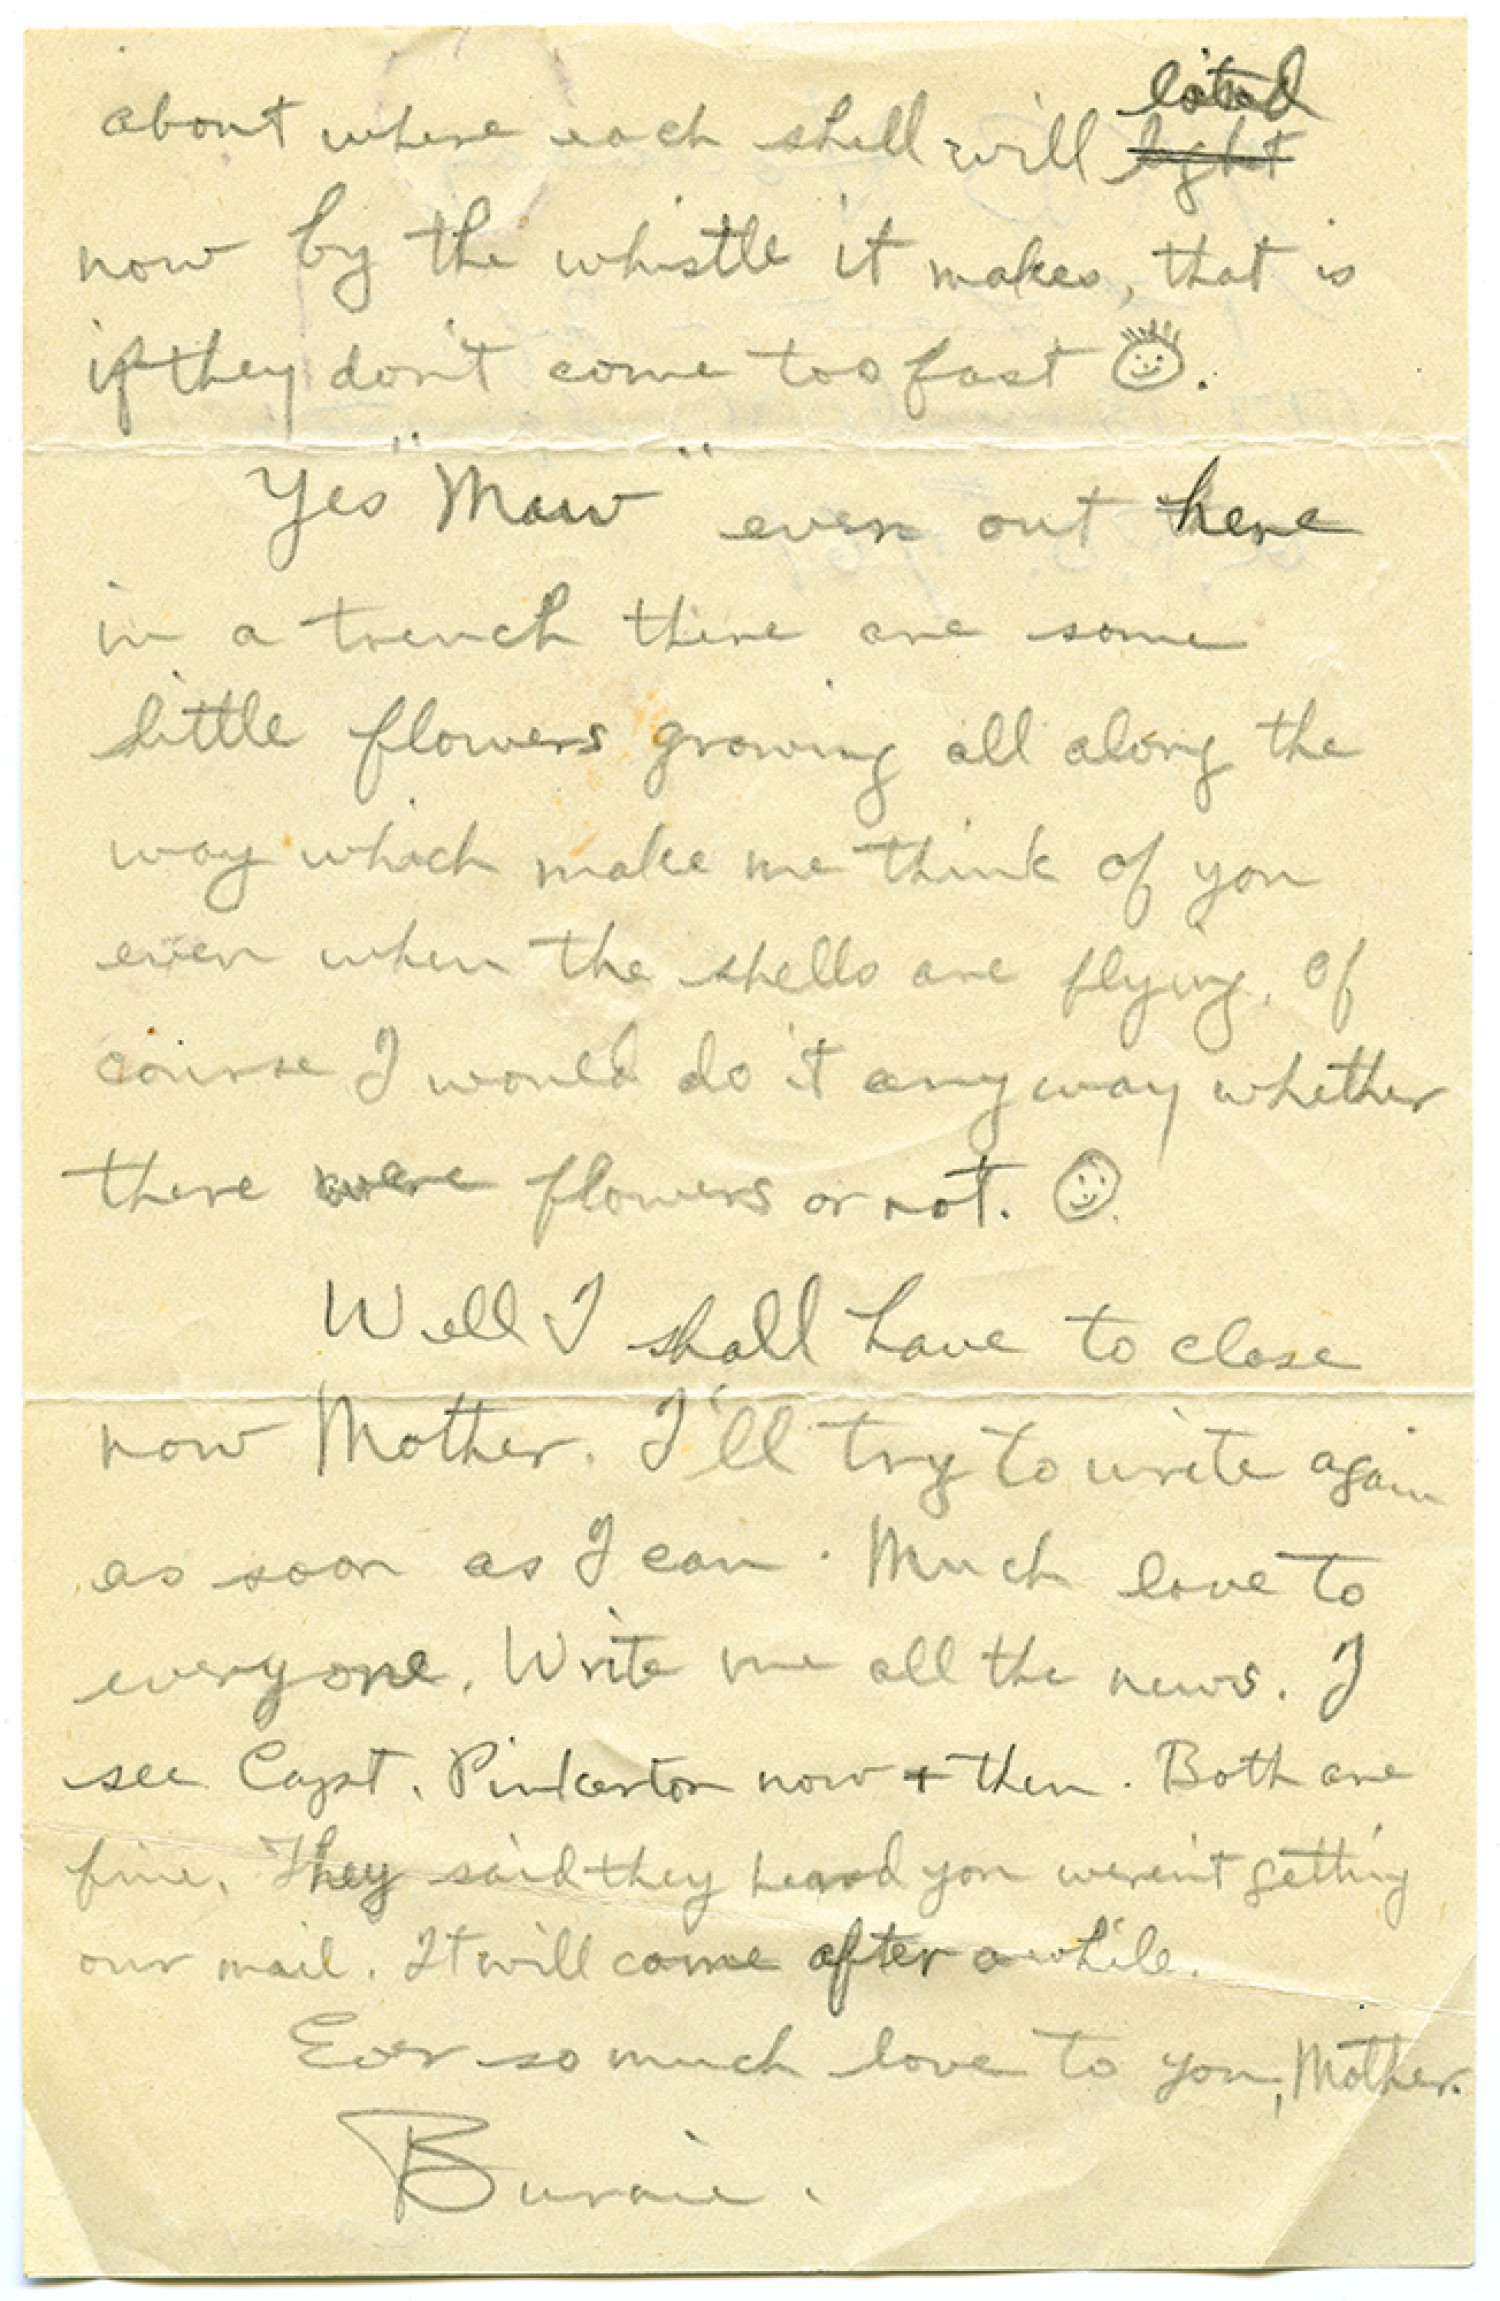 about where each shell will light
now by the whistle it makes, that is
if they don't come too fast ☺.
Yes "Maw" even out here
in a trench there are some
little flowers growing all along the
way which make me think of you
even when the shells are flying. Of
course I would do it anyway whether
there were flowers or not. ☺
Well I shall have to close
now Mother. I'll try to write again
as soon as I can. Much love to
everyone. Write me all the news. I
see Capt. Pinkerton now + then. Both are
fine. They said they heard you weren't getting
our mail. It will come after awhile.
Ever so much love to you, Mother.
Burnie.